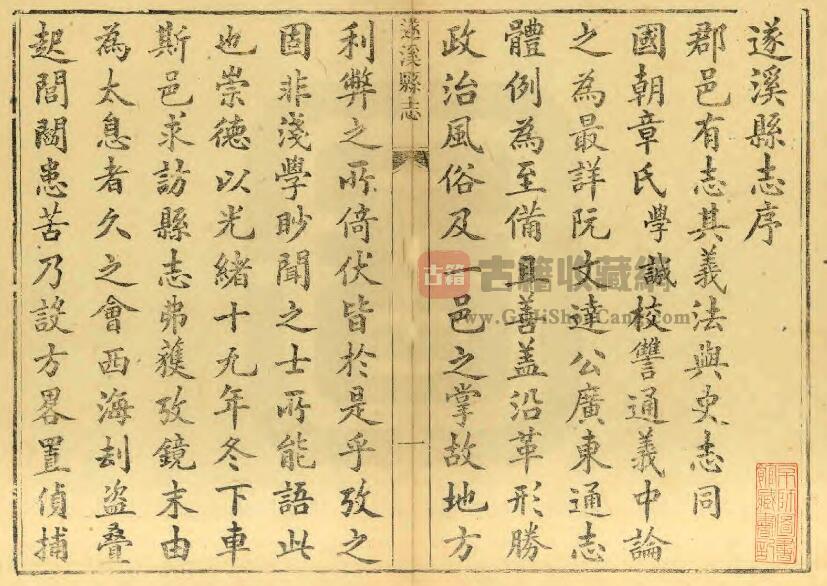 遂溪縣志序
郡邑有志其義法與史志同
國朝章氏學誠校讐通義中論
之為最詳阮文達公廣東通志
體例為至備且善盖沿革形勝
政治風俗及一邑之掌故地方
遂溪縣志
一
利弊之所倚伏皆於是乎攷之
固非淺學眇聞之士所能語此
也崇德以光緒十九年冬下車
斯邑求訪縣志弗獲攷鏡末由
為太息者久之會西海刦盗叠
起閭閻患苦乃設方畧置偵捕
古籍
古籍收藏網
www.GuJiShouCang.com